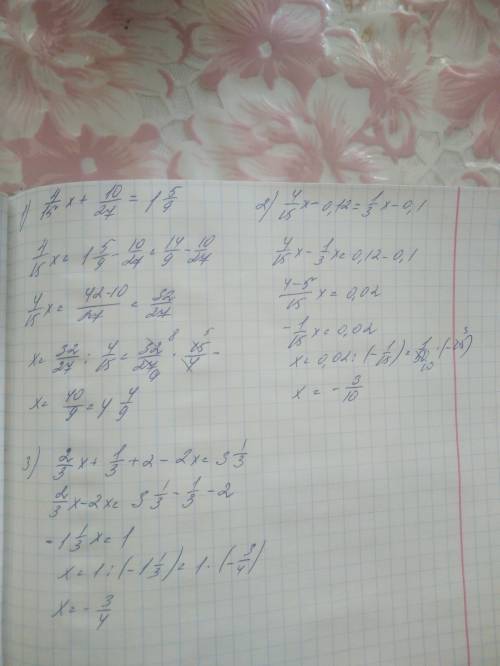 1) 4/15 x + 10/27 = 1 5/9
4/15 x = 1 5/9 - 10/27 = 14/9 - 10/27
4/15 x = 42-10/27 = 32/27
x = 32/27 : 4/15 = 32/27 · 15/4 =
8 5
9
x = 40/9 = 4 4/9
2) 4/15 x - 0,12 = 1/3 x - 0,1
4/15 x - 1/3 x = 0,12 - 0,1
4-5/15 x = 0,02
- 1/15 x = 0,02
x = 0,02 : (- 1/15) = 1/50 · (-15)
3
10
x = - 3/10
3) 2/3 x + 1/3 + 2 - 2x = 3 1/3
2/3 x - 2x = 3 1/3 - 1/3 - 2
- 1 1/3 x = 1
x = 1 : (-1 1/3) = 1 · (- 3/4)
x = - 3/4